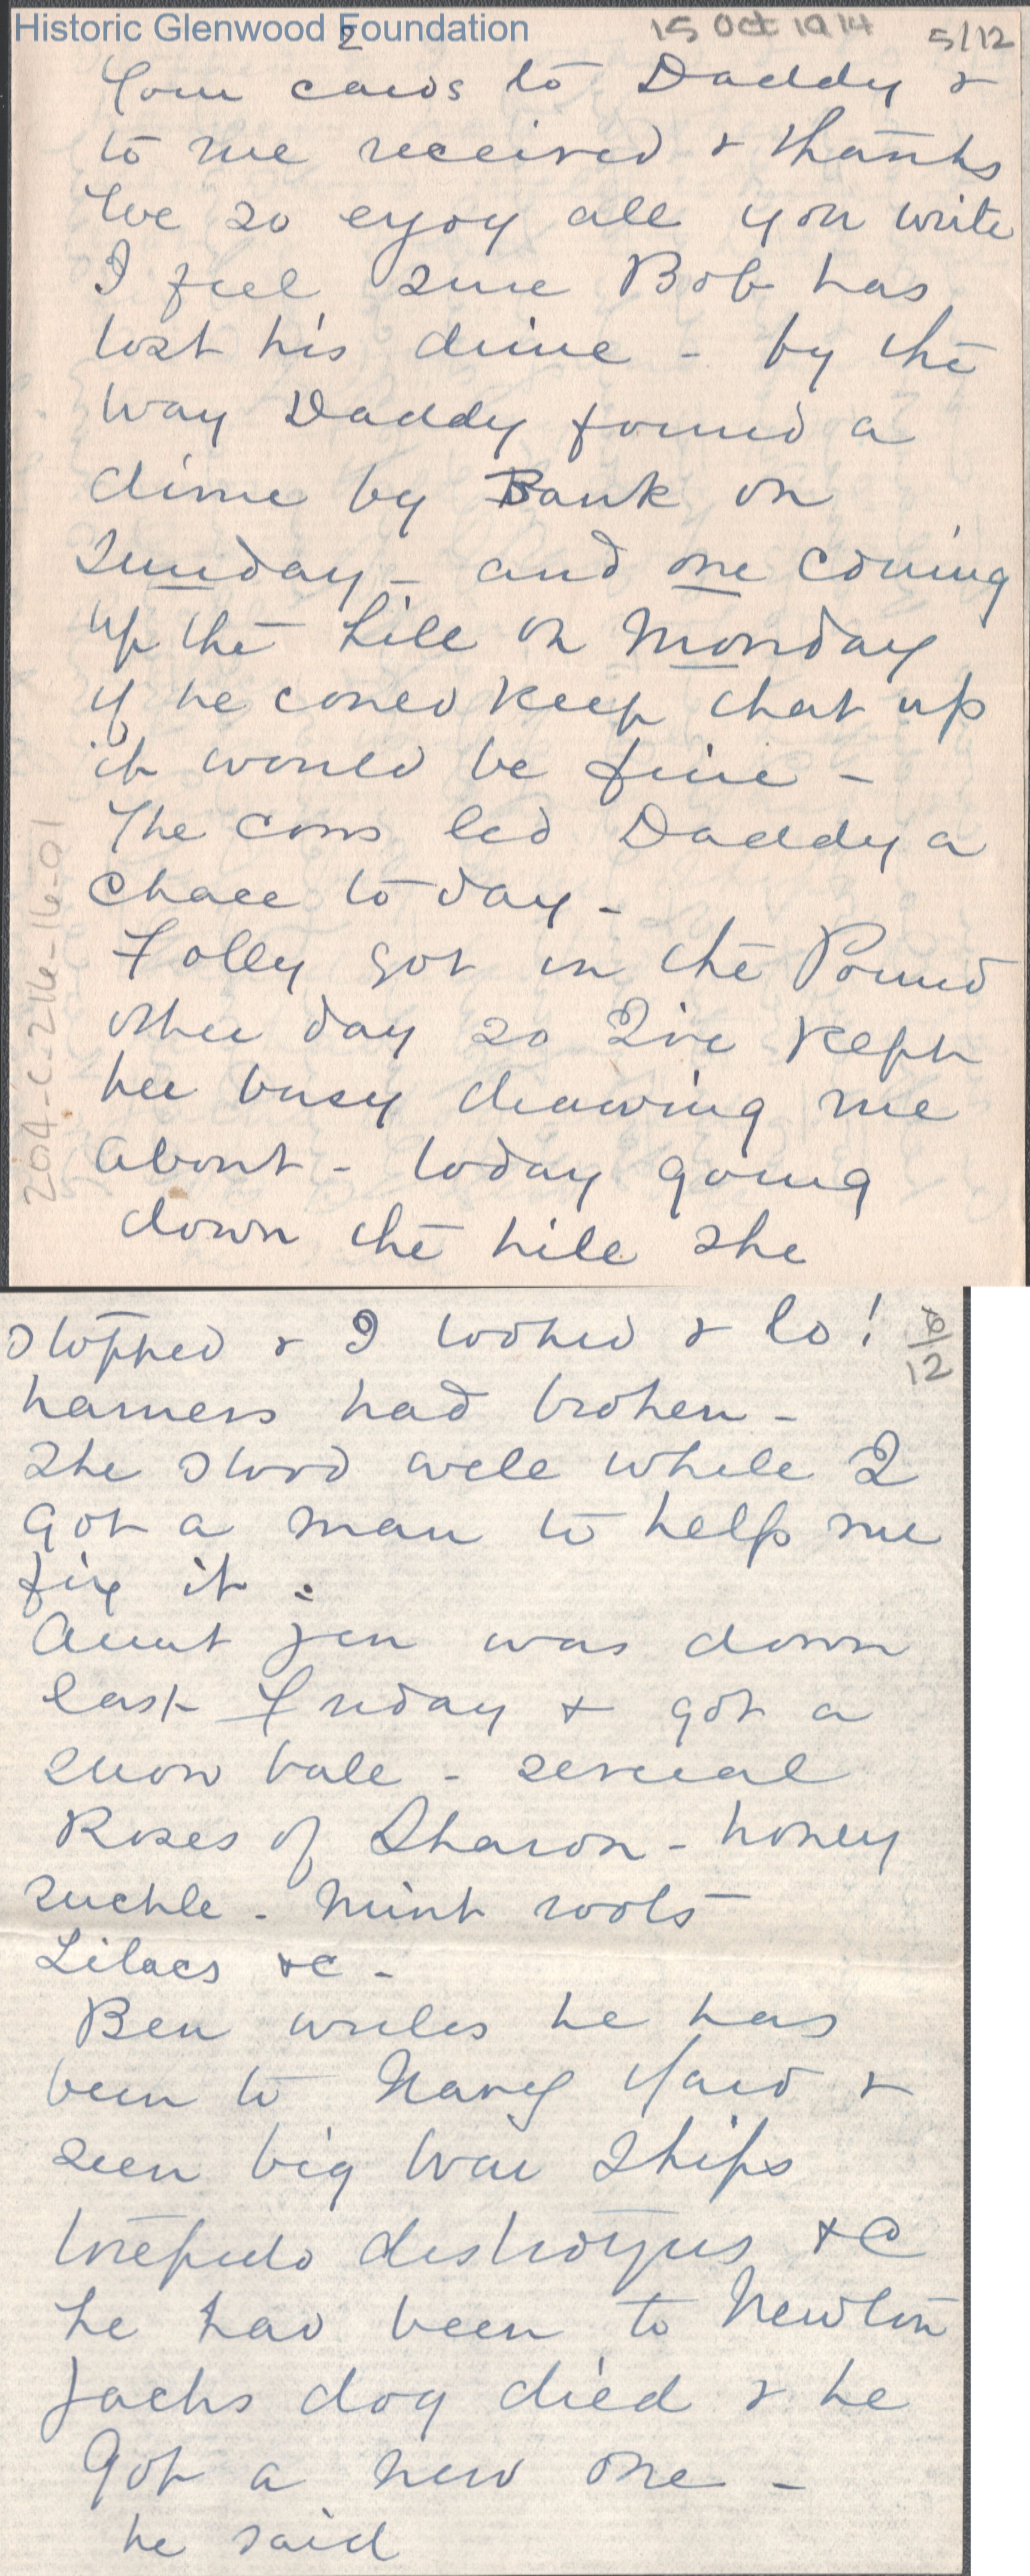 Historic Glenwood Foundation
2
15 Oct 1914
5/12
Your cards to Daddy &
to me received & thanks
We so enjoy all you write
I feel sure Bob has
lost his dime - by the
way Daddy found a
dime by Bank on
Sunday - and one coming
up the hill on Monday
if he could keep that up
it would be fine -
The cows led Daddy a
chace to day -
Folly got in the Pound
other day so I've kept
her busy drawing me
about - today going
down the hill she
204-C-216-16-01
stopped & I looked & lo!
6/12
harness had broken -
She stood well while I
got a man to help me
fix it -
Aunt Jen was down
last Friday & got a
snow ball - several
Roses of Sharon - honey
suckle - mint roots
Lilacs &c -
Ben writes he has
been to Navy Yard &
seen big war ships
torepedo destroyers &c
he had been to Newton
Jacks dog died & he
got a new one -
he said